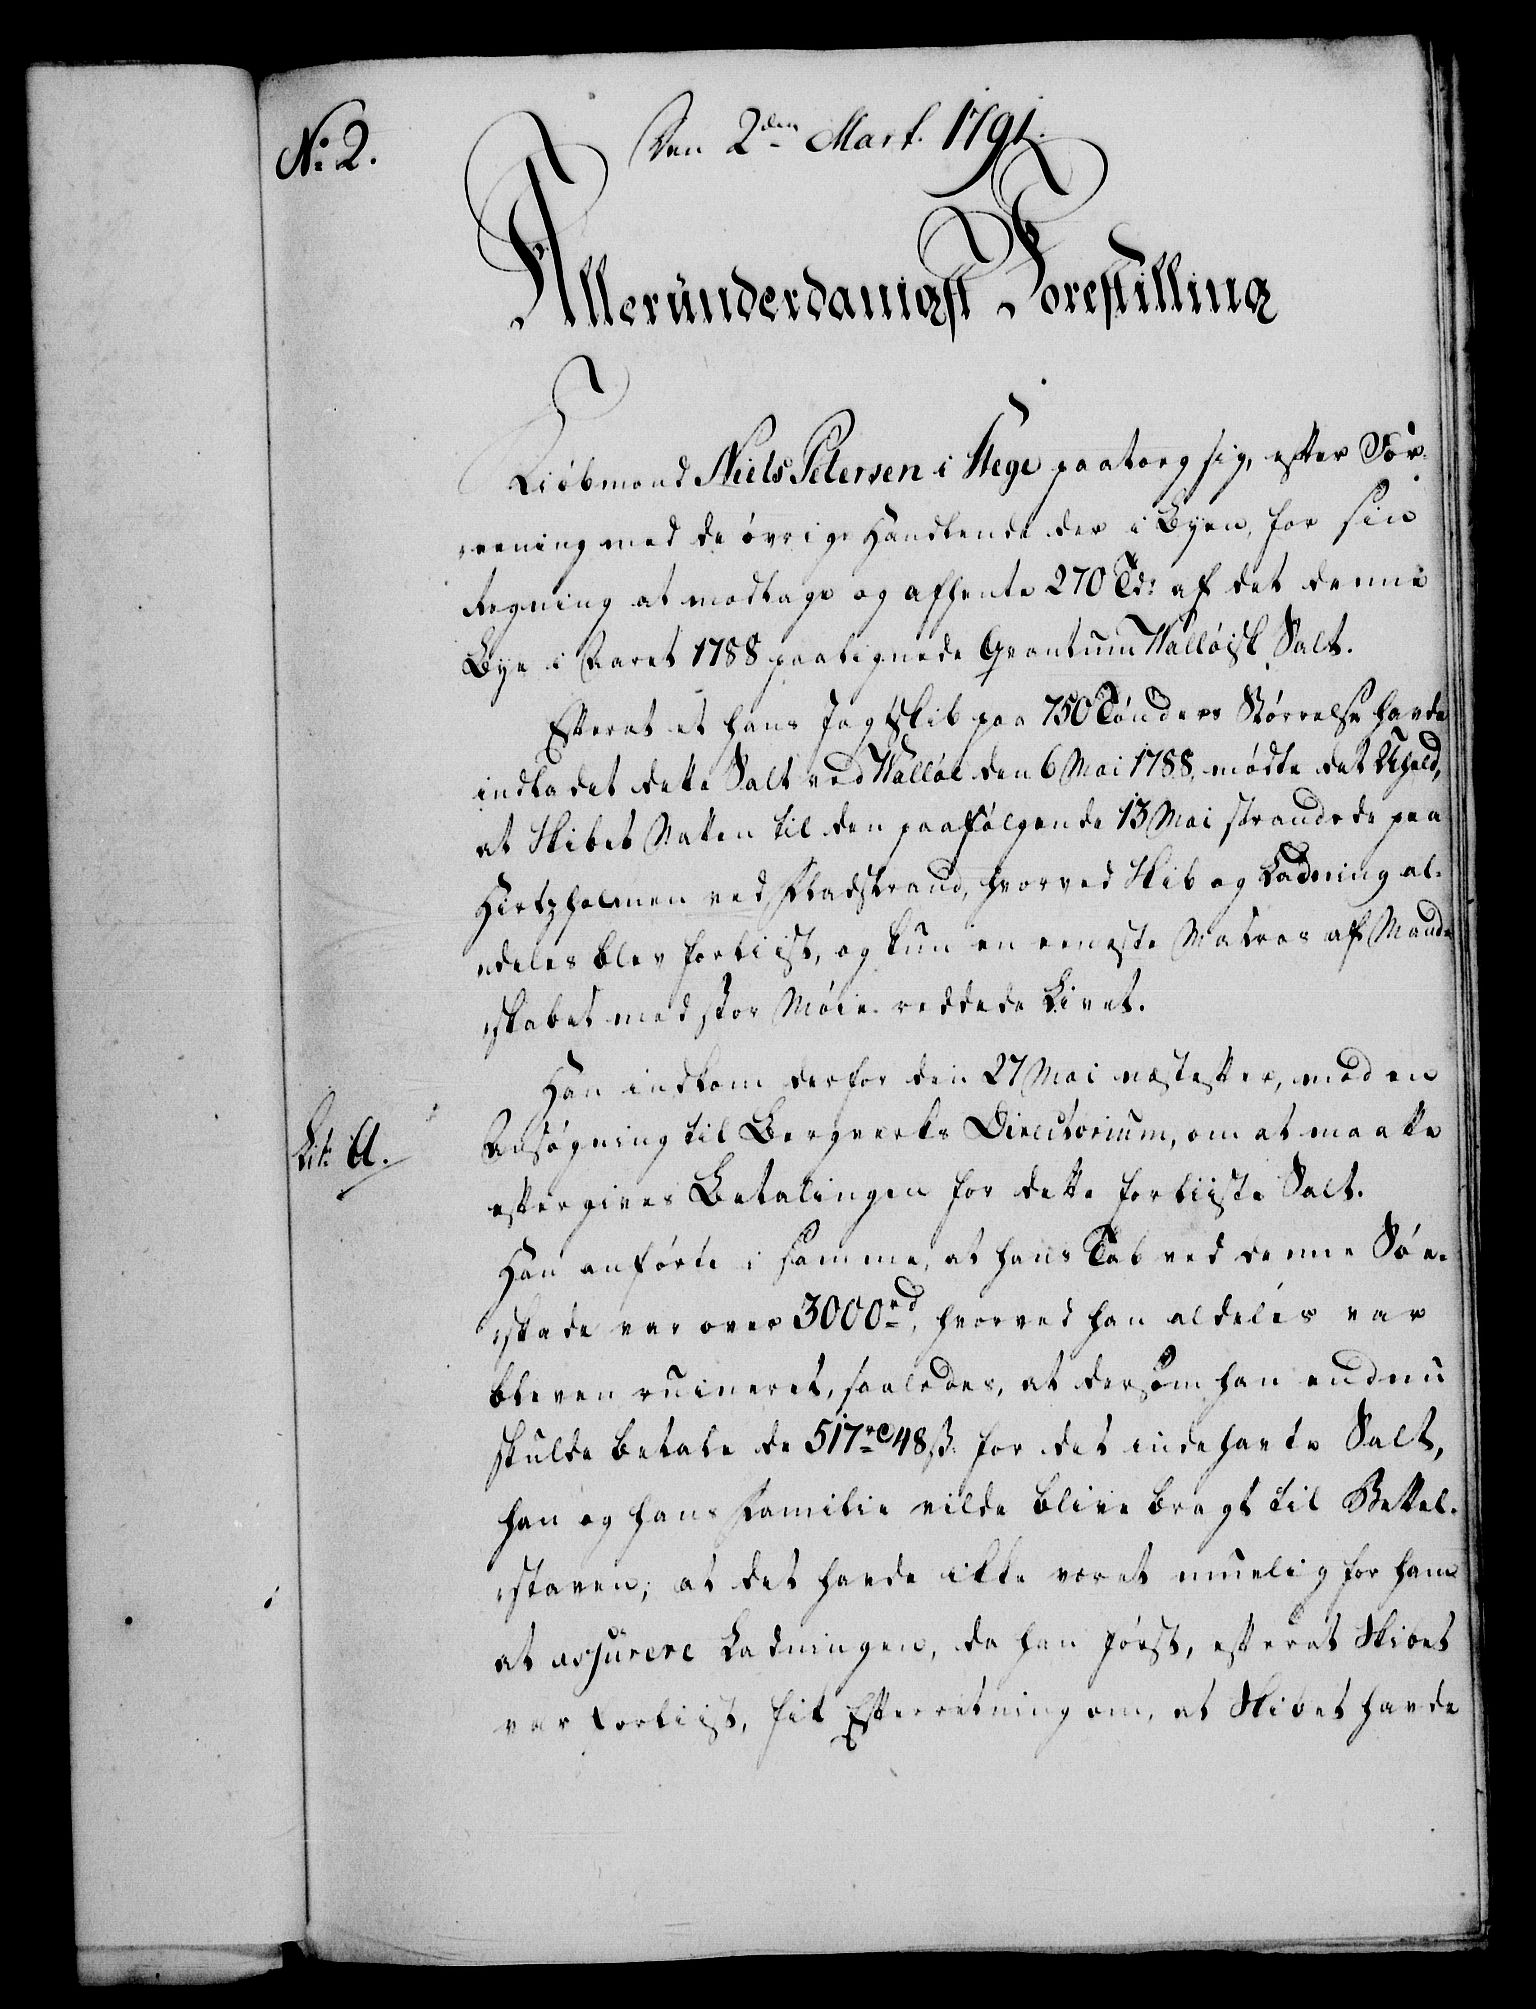 No 2.
Den 2den Mart. 1791.
Allerunderdanigst Forestilling
Kiöbmand Niels Petersen i Stege paatoeg sig, efter For-
eening med de övrige Handlende der i Byen, for sin
Regning at modtage og afhente 270 Tdr af det denne
Bye i Aaret 1788 paalignede Qvantum Wallöisk Salt.
Efterat et hans Jagtskib paa 750 Tönders Störrelse havde
indladet dette Salt ved Wallöe den 6 Mai 1788, mödte det Uheld,
at Skibet Natten til den paafölgende 13 Mai strandede paa
Hirtzholmen ved Fladstrand, hvorved Skib og Ladning al-
deles blev forliist, og kun en eeneste Matros af Mand-
skabet med stor Möie reddede Livet.
Han indkom derfor den 27 Mai næstefter, med en
Lit: A.
Ansögning til Bergverks Directorium, om at maatte
eftergives Betalingen for dette forliiste Salt.
Han anförte i samme, at hans Tab ved denne Söe-
skade var over 3000 rd, hvorved han aldeles var
bleven ruineret, saaledes, at dersom han endnu
skulde betale de 517 rd 48 ß for det indehavte Salt,
han og hans Familie vilde blive bragt til Bettel-
staven; at det havde ikke været muelig for ham
at assurere Ladningen, da han först, efterat Skibet
var forliist, fik Efterretning om, at Skibet havde